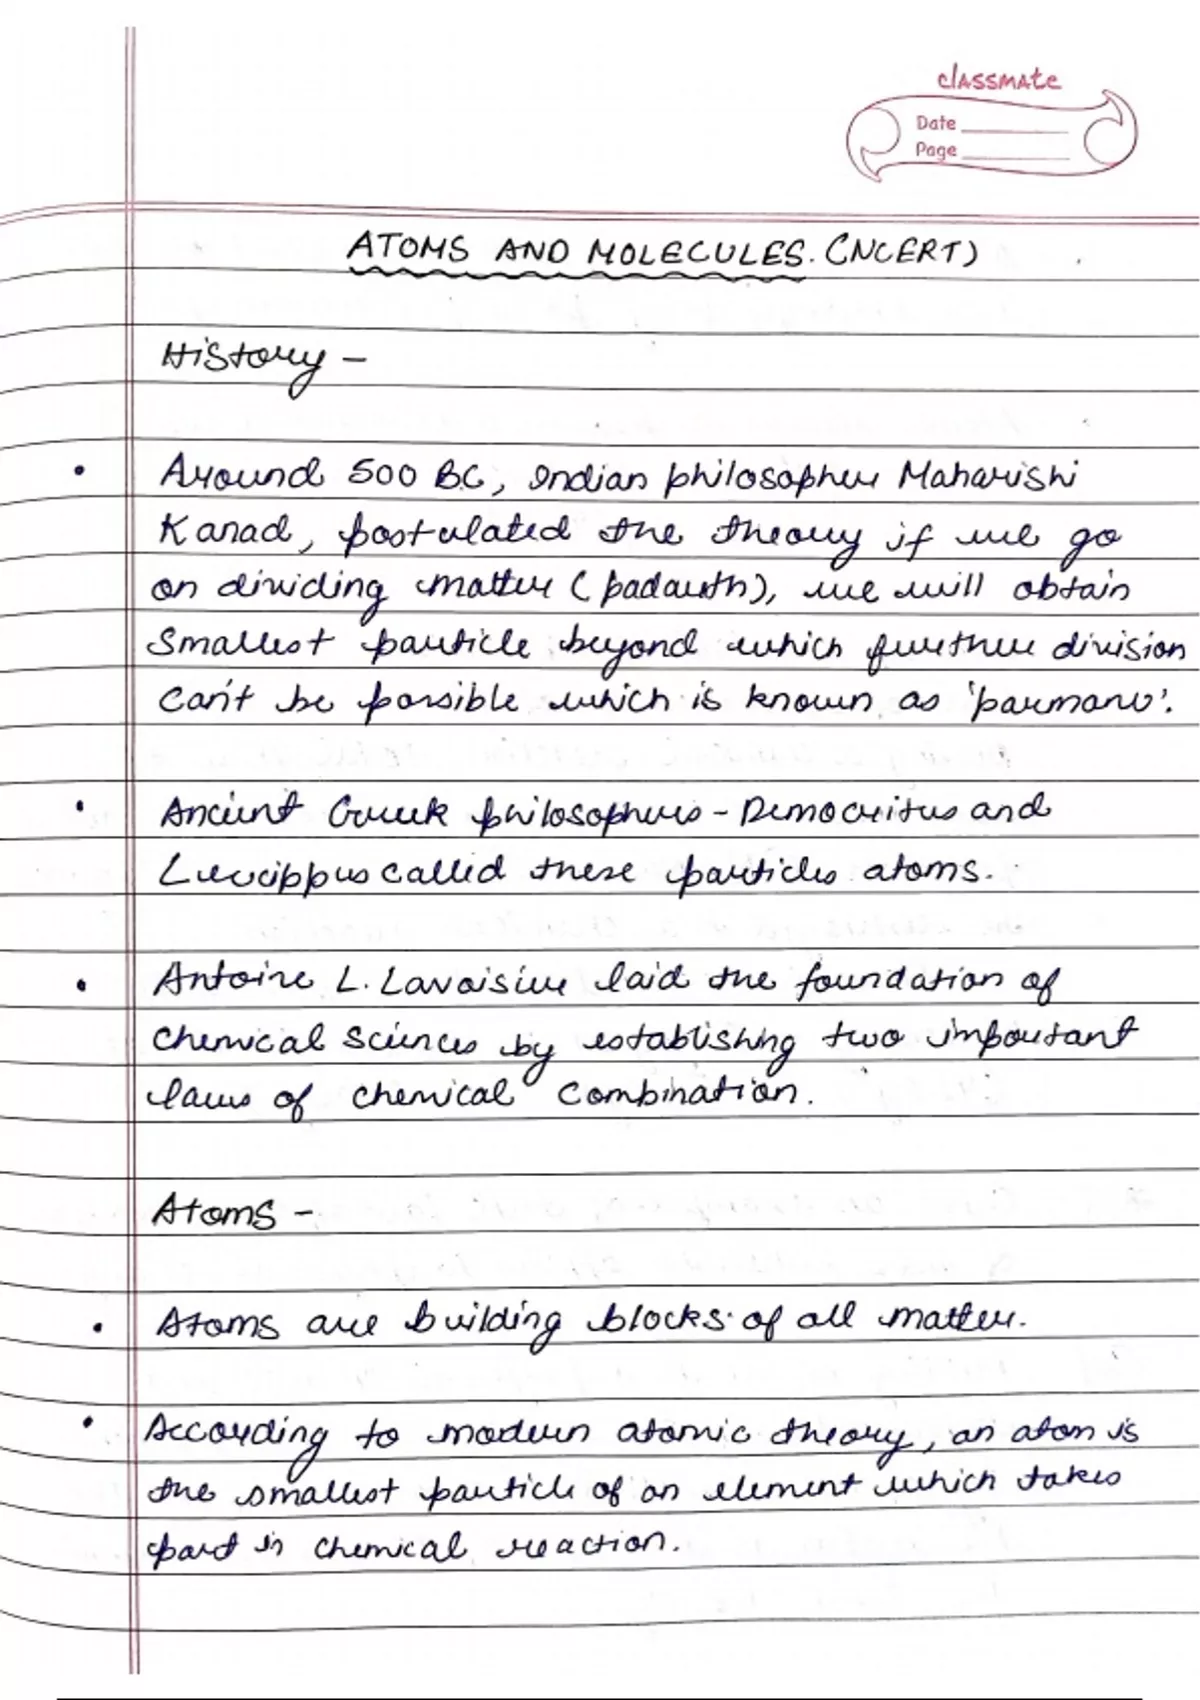 classmate
Date
Page
ATOMS AND MOLECULES. (NCERT)
History -
• Around 500 BC, Indian philosopher Maharishi
Kanad, postulated the theory if we go
on dividing matter (padarth), we will obtain
smallest particle beyond which further division
can't be possible which is known as 'parmanu'.
• Ancient Greek philosophers - Democritus and
Leucippus called these particles atoms.
• Antoine L. Lavoisier laid the foundation of
chemical sciences by establishing two important
laws of chemical combination.
Atoms -
• Atoms are building blocks of all matter.
• According to modern atomic theory, an atom is
the smallest particle of an element which takes
part in chemical reaction.